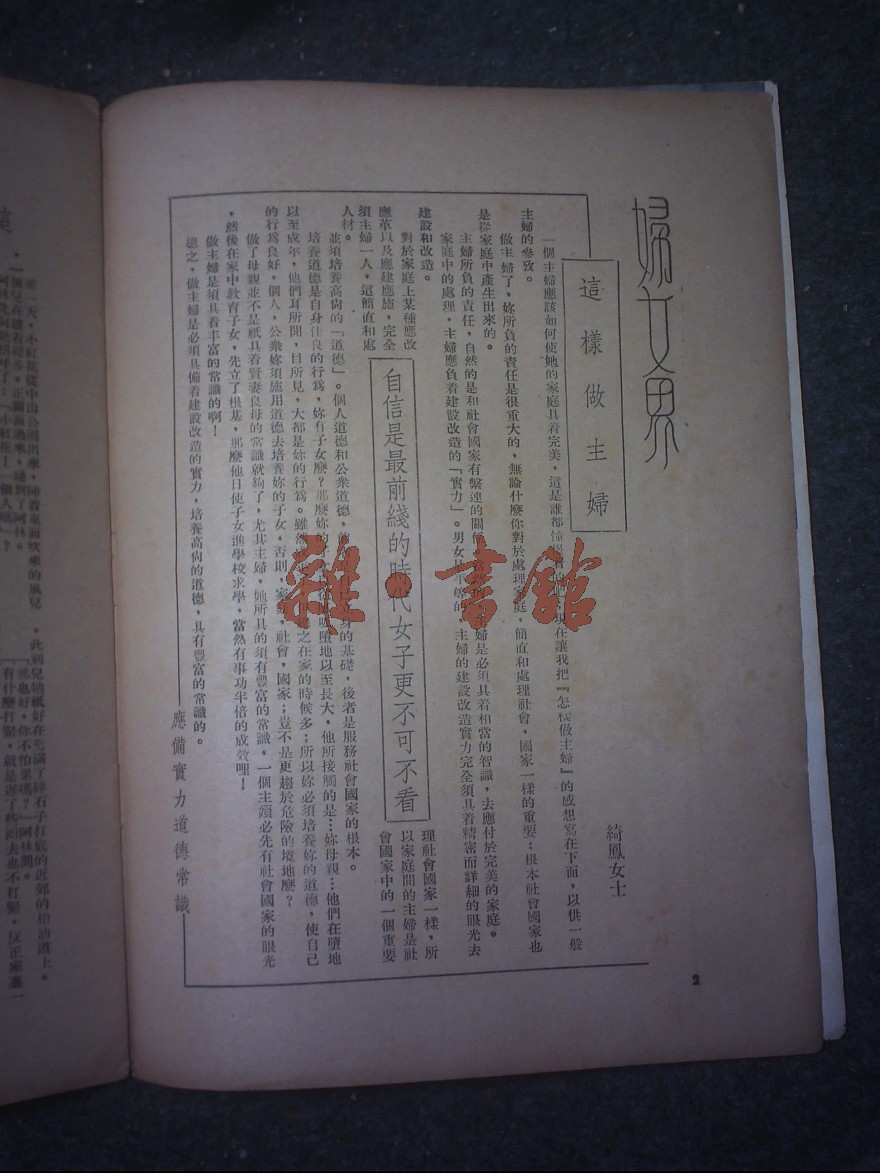 婦女界
這樣做主婦
綺鳳女士
一個主婦應該如何使她的家庭具着完美，這是誰都 現在讓我把『怎樣做主婦』的感想寫在下面，以供一般
主婦的參攷。
做主婦了，妳所負的責任是很重大的，無論什麼你對於處理家庭，簡直和處理社會，國家一樣的重要…根本社會國家也
是從家庭中產生出來的。
主婦所負的責任，自然的是和社會國家有繫連的關係， 主婦是必須具着相當的智識，去應付於完美的家庭。
家庭中的處理，主婦應負着建設改造的「實力」。男女是平等的，主婦的建設改造實力完全須具着精密而詳細的眼光去
建設和改造。
對於家庭上某種應改
應革以及應建應施，完全
須主婦一人，這簡直和處
理社會國家一樣，所
以家庭間的主婦是社
會國家中的一個重要
人材。
自信是最前綫的時代女子更不可不看
並須培養高尚的「道德」。個人道德和公衆道德， 身的基礎，後者是服務社會國家的根本。
培養道德是自身住良的行爲，妳有子女麼？那麼妳的 墮地以至長大，他所接觸的是…妳母親…他們在墮地
以至成年，他們耳所聞，目所見，大都是妳的行爲。雖然 之在家的時候多；所以妳必須培養妳的道德，使自己
的行爲良好，個人，公衆妳須施用道德去培養妳的子女，否則，家庭，社會，國家；豈不是更趨於危險的境地麼？
做了母親並不是祇具着賢妻良母的常識就夠了，尤其主婦，她所具的須有豐富的常識，一個主婦必先有社會國家的眼光
，然後在家中教育子女，先立了根基，那麼他日使子女進學校求學，當然有事功半倍的成效哩！
做主婦是須具着丰富的常識的啊！
總之，做主婦是必須具備着建設改造的實力，培養高尚的道德，具有豐富的常識的。
應備實力道德常識
2
雜·書館
那一天，小紅花從中山公園出來，
，一個兒在緩着初步。正圖面過來，碰到了阿林。
「小紅花！一個人嗎」？
「那也好，你不怕累嗎？」阿林問。